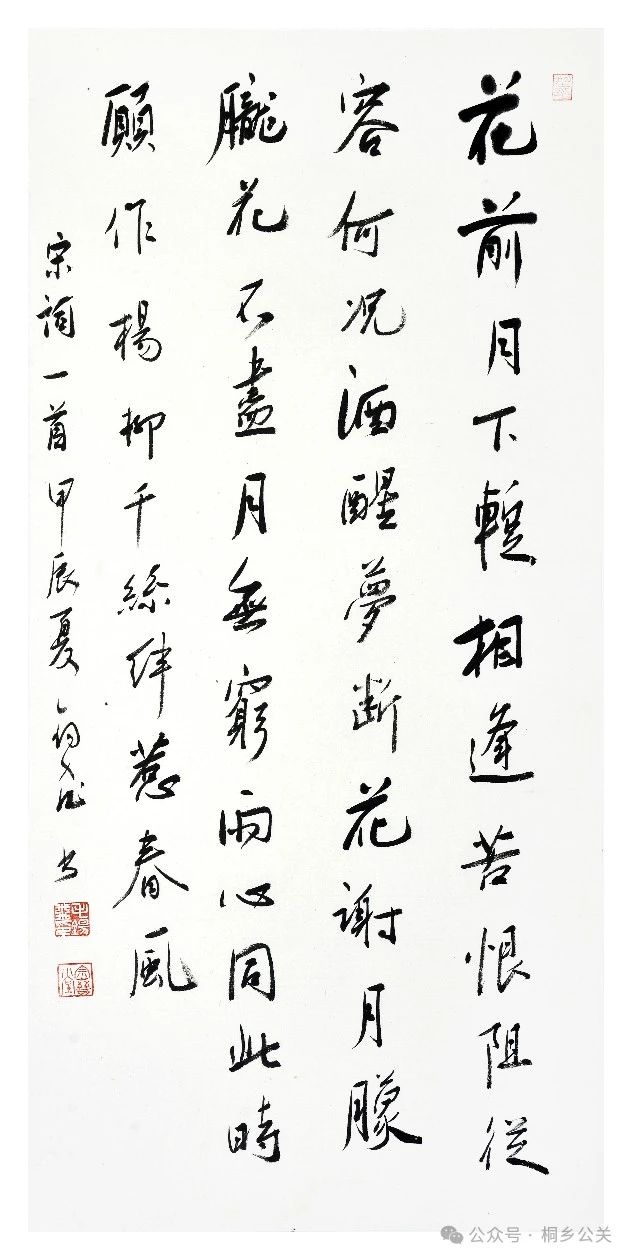 花前月下暫相逢苦恨阻從
容何況酒醒夢斷花謝月朦
朧花不盡月無窮兩心同此時
願作楊柳千絲絆惹春風
宋詞一首甲辰夏书
公众号·桐乡公关